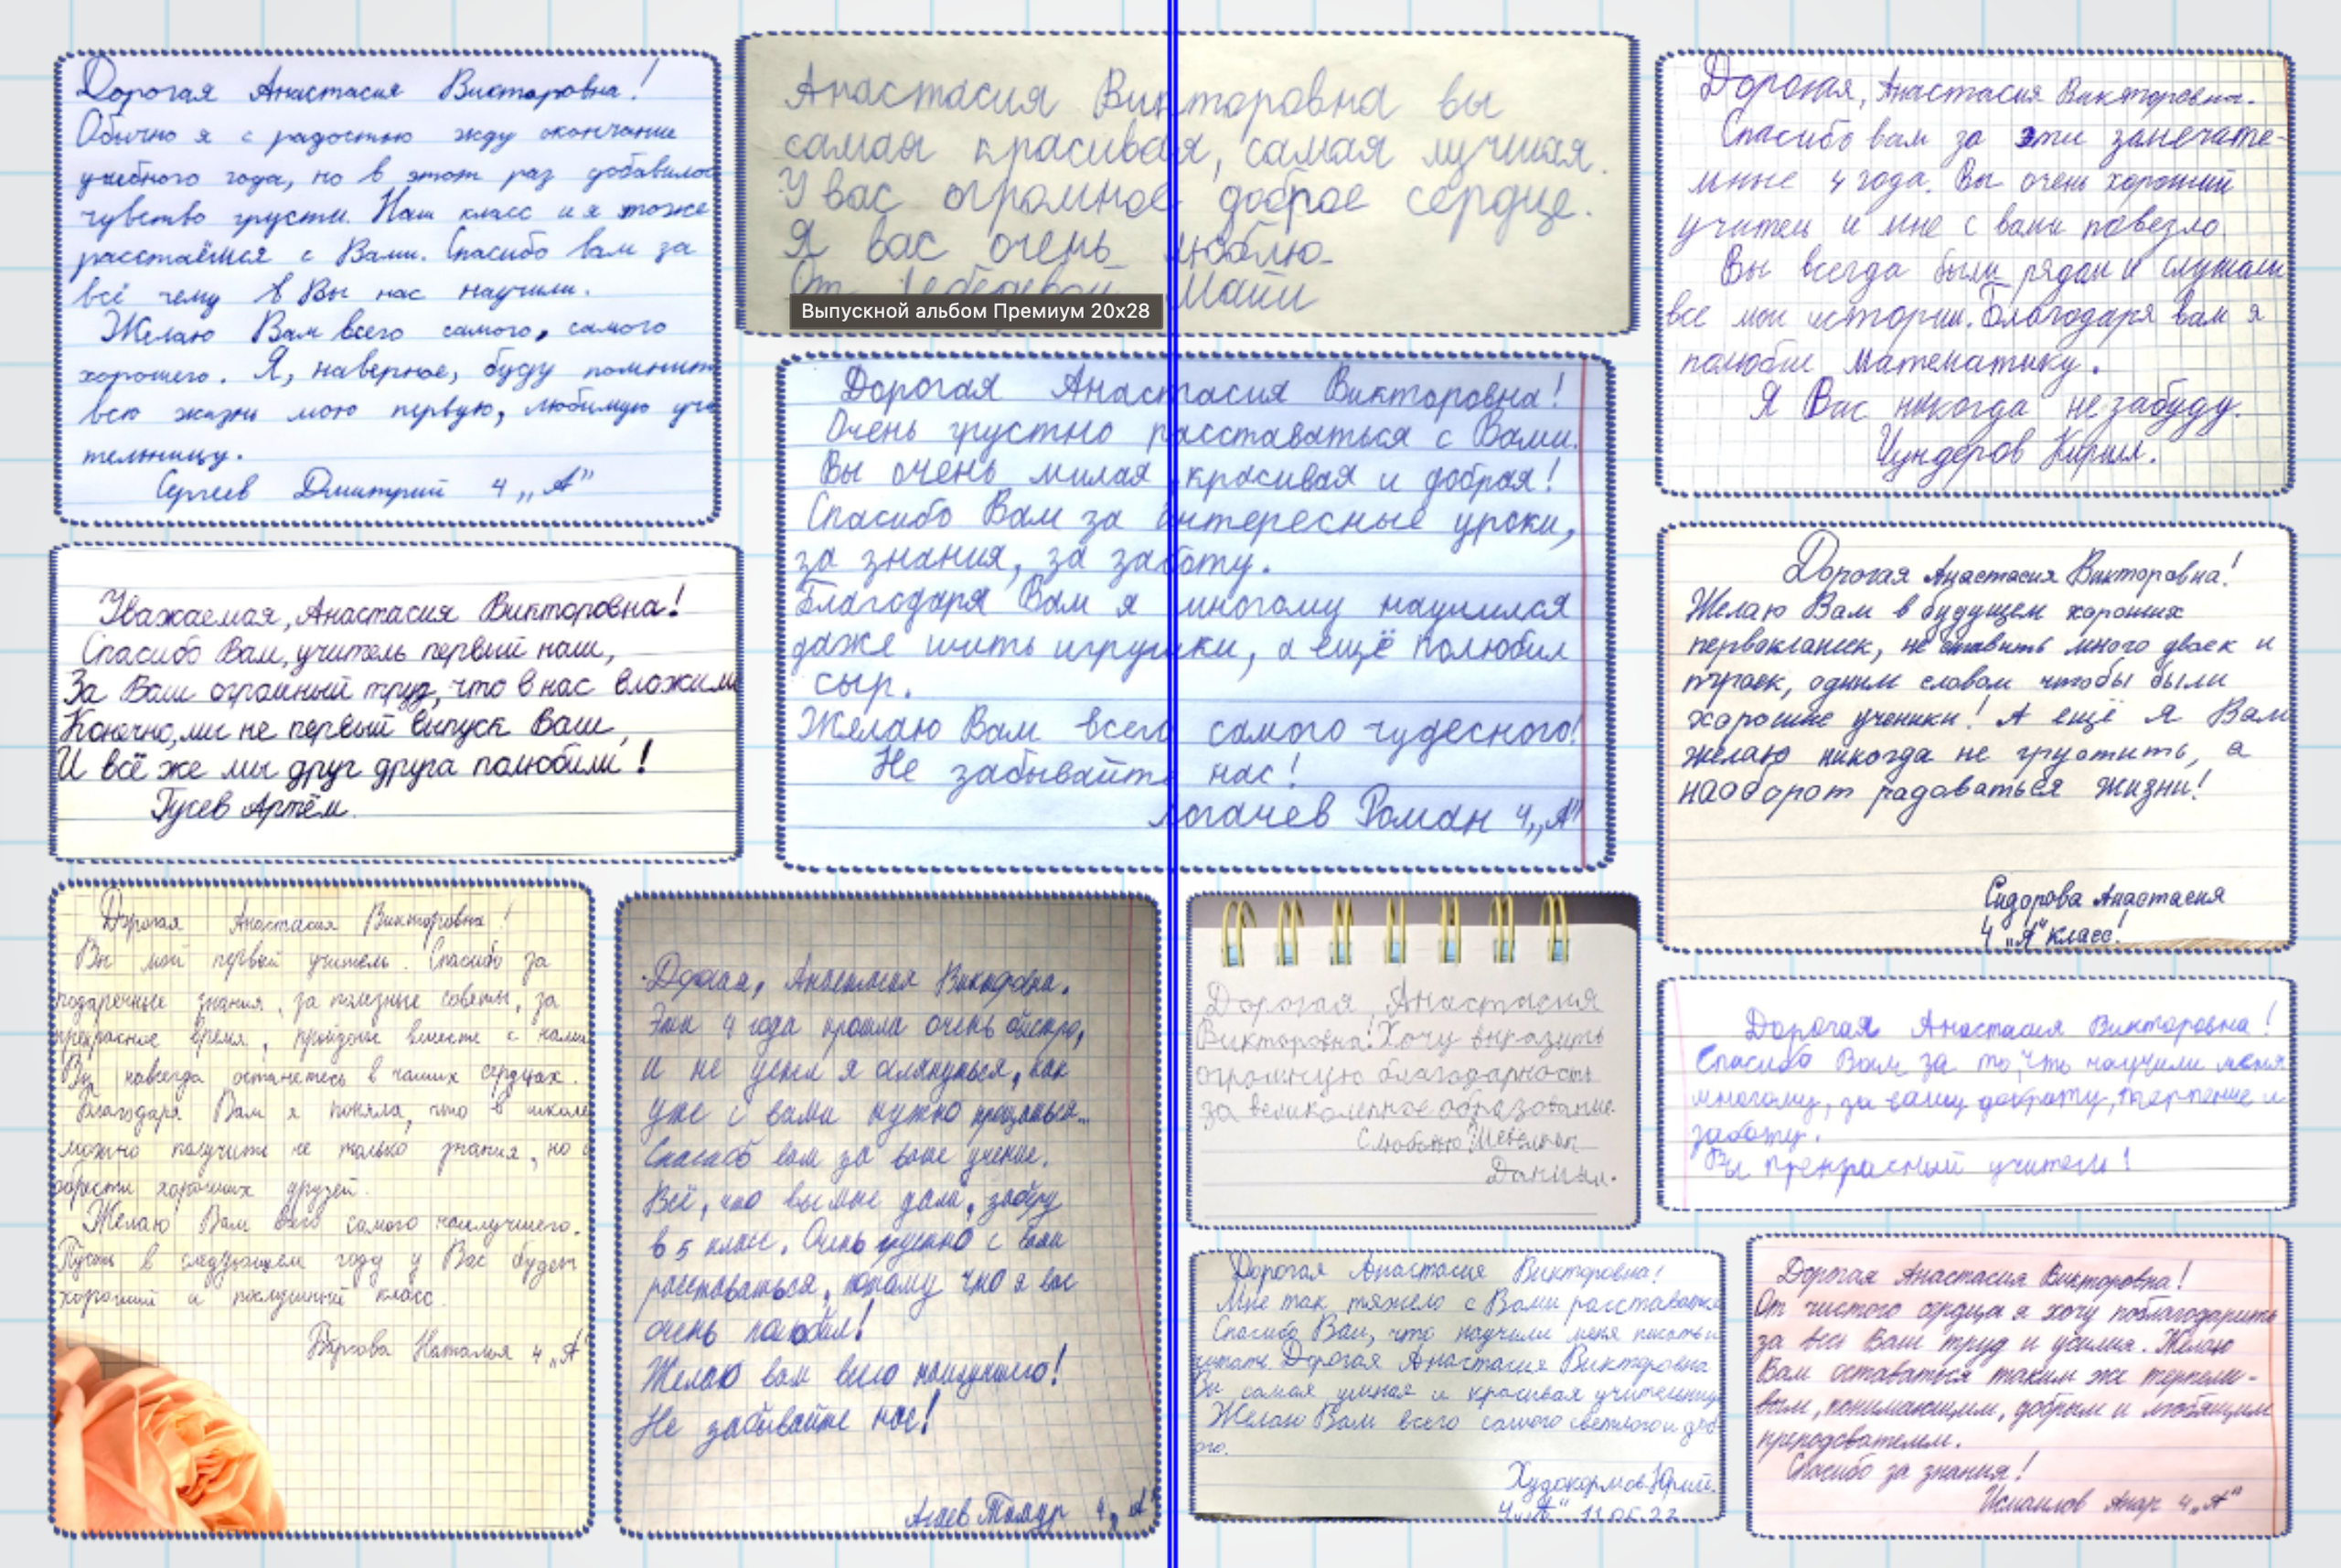 Дорогая Анастасия Викторовна!
Обычно я с радостью жду окончание
учебного года, но в этот раз добавилос
чувство грусти. Наш класс и я тоже
расстаёмся с Вами. Спасибо вам за
всё чему Вы нас научили.
Желаю Вам всего самого, самого
хорошего. Я, наверное, буду помнит
всю жизнь мою первую, любимую учи
тельницу.
Сергеев Дмитрий 4 „А"
Анастасия Викторовна вы
самая красивая, самая лучшая.
У вас огромное доброе сердце.
Я вас очень люблю.
От Лебедевой Майи
Выпускной альбом Премиум 20x28
Дорогая, Анастасия Викторовна.
Спасибо вам за эти замечате-
льные 4 года. Вы очень хороший
учитель и мне с вами повезло.
Вы всегда были рядом и слушали
все мои истории. Благодаря вам я
полюбил математику.
Я Вас никогда не забуду.
Чундеров Кирилл.
Дорогая Анастасия Викторовна!
Очень грустно расставаться с Вами.
Вы очень милая красивая и добрая!
Спасибо Вам за интересные уроки,
за знания, за заботу.
Благодаря Вам я многому научился
даже шить игрушки, а ещё полюбил
сыр.
Желаю Вам всего самого чудесного!
Не забывайте нас!
Логачев Роман 4„А"
Уважаемая, Анастасия Викторовна!
Спасибо Вам, учитель первый наш,
За Ваш огромный труд, что в нас вложили
Конечно, мы не первый выпуск Ваш,
И всё же мы друг друга полюбили!
Гусев Артём.
Дорогая Анастасия Викторовна!
Желаю Вам в будущем хороших
первоклашек, не ставить много двоек и
троек, одним словом чтобы были
хорошие ученики! А ещё я Вам
желаю никогда не грустить, а
наоборот радоваться жизни!
Сидорова Анастасия
4 „А" класс!
Дорогая Анастасия Викторовна!
Вы мой первый учитель. Спасибо за
подаренные знания, за полезные советы, за
прекрасное время, вместе с нами
Вы навсегда останетесь в наших сердцах.
Благодаря Вам я поняла, что в школе
можно получить не только знания, но и
обрести хороших друзей.
Желаю Вам всего самого наилучшего.
Пусть в следующем году у Вас будет
хороший и послушный класс.
Наталья 4 „А"
Дорогая, Анастасия Викторовна.
Эти 4 года прошли очень быстро,
И не успел я оглянуться, как
уже с вами нужно прощаться...
Спасибо вам за ваше учение.
Всё, что вы мне дали, заберу
в 5 класс. Очень грустно с вами
расставаться, потому что я вас
очень полюбил!
Желаю вам всего наилучшего!
Не забывайте нас!
Агаев Тимур 4„А"
Дорогая, Анастасия
Викторовна! Хочу выразить
огромную благодарность
за великолепное образование.
С любовью
Даниил.
Дорогая Анастасия Викторовна!
Спасибо Вам за то, что научили меня
многому, за вашу доброту, терпение и
заботу.
Вы прекрасный учитель!
Дорогая Анастасия Викторовна!
Мне так тяжело с Вами расставаться
Спасибо Вам, что научили меня писать и
читать. Дорогая Анастасия Викторовна
Вы самая умная и красивая учительница
Желаю Вам всего самого светлого и доб
ого.
Худокормов Юрий.
4„А" 11.05.22
Дорогая Анастасия Викторовна!
От чистого сердца я хочу поблагодарить
за весь Ваш труд и усилия. Желаю
Вам оставаться таким же терпели-
вым, понимающим, добрым и любящим
преподователем.
Спасибо за знания!
Исмаилов Анар 4„А"